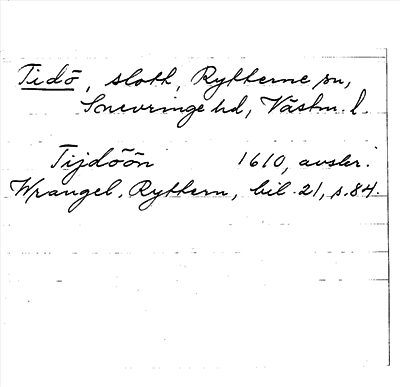 Tidö, slott, Rytterne sn,
Snevringe hd, Västm. l.
Tijdöön 1610, avskr.
Wrangel, Ryttern, bil. 21, s. 84.